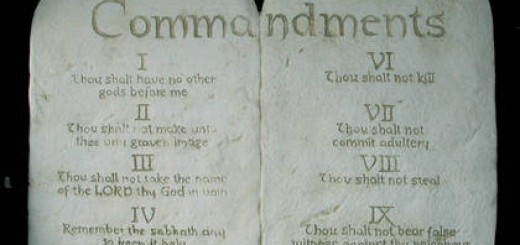 Commandments
I
Thou shalt have no other
gods before me
II
Thou shalt not make unto
thee any graven image
III
Thou shall not take the name
of the LORD thy God in vain
IV
Remember the sabbath day
to keep it holy
VI
Thou shalt not kill
VII
Thou shall not
commit adultery
VIII
Thou shalt not steal
IX
Thou shall not bear false
witness against thy neighbour